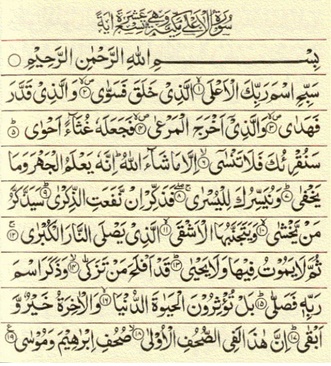 سُوْرَةُ الْاَعْلٰى مَكِّيَّةٌ وَّهِيَ تِسْعَ عَشْرَةَ اٰيَةً
بِسْمِ اللّٰهِ الرَّحْمٰنِ الرَّحِيْمِ ○
سَبِّحِ اسْمَ رَبِّكَ الْاَعْلَى ۙ۱ الَّذِيْ خَلَقَ فَسَوّٰى ۙ۲ وَالَّذِيْ قَدَّرَ
فَهَدٰى ۙ۳ وَالَّذِيْٓ اَخْرَجَ الْمَرْعٰى ۙ۴ فَجَعَلَهٗ غُثَآءً اَحْوٰى ۵ؕ
سَنُقْرِئُكَ فَلَا تَنْسٰٓى ۙ۶ اِلَّا مَا شَآءَ اللّٰهُ ؕ اِنَّهٗ يَعْلَمُ الْجَهْرَ وَمَا
يَخْفٰى ؕ۷ وَنُيَسِّرُكَ لِلْيُسْرٰى ۚۖ۸ فَذَكِّرْ اِنْ نَّفَعَتِ الذِّكْرٰى ؕ۹ سَيَذَّكَّرُ
مَنْ يَّخْشٰى ۙ۱۰ وَيَتَجَنَّبُهَا الْاَشْقَى ۙ۱۱ الَّذِيْ يَصْلَى النَّارَ الْكُبْرٰى ۚ۱۲
ثُمَّ لَا يَمُوْتُ فِيْهَا وَلَا يَحْيٰى ؕ۱۳ قَدْ اَفْلَحَ مَنْ تَزَكّٰى ۙ۱۴ وَذَكَرَ اسْمَ
رَبِّهٖ فَصَلّٰى ؕ۱۵ بَلْ تُؤْثِرُوْنَ الْحَيٰوةَ الدُّنْيَا ۖ۱۶ وَالْاٰخِرَةُ خَيْرٌ وَّ
اَبْقٰى ؕ۱۷ اِنَّ هٰذَا لَفِى الصُّحُفِ الْاُوْلٰى ۙ۱۸ صُحُفِ اِبْرٰهِيْمَ وَمُوْسٰى ۱۹